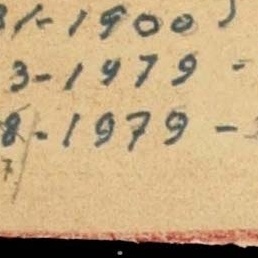 31-1900)
3-1979 -
8-1979 -
7